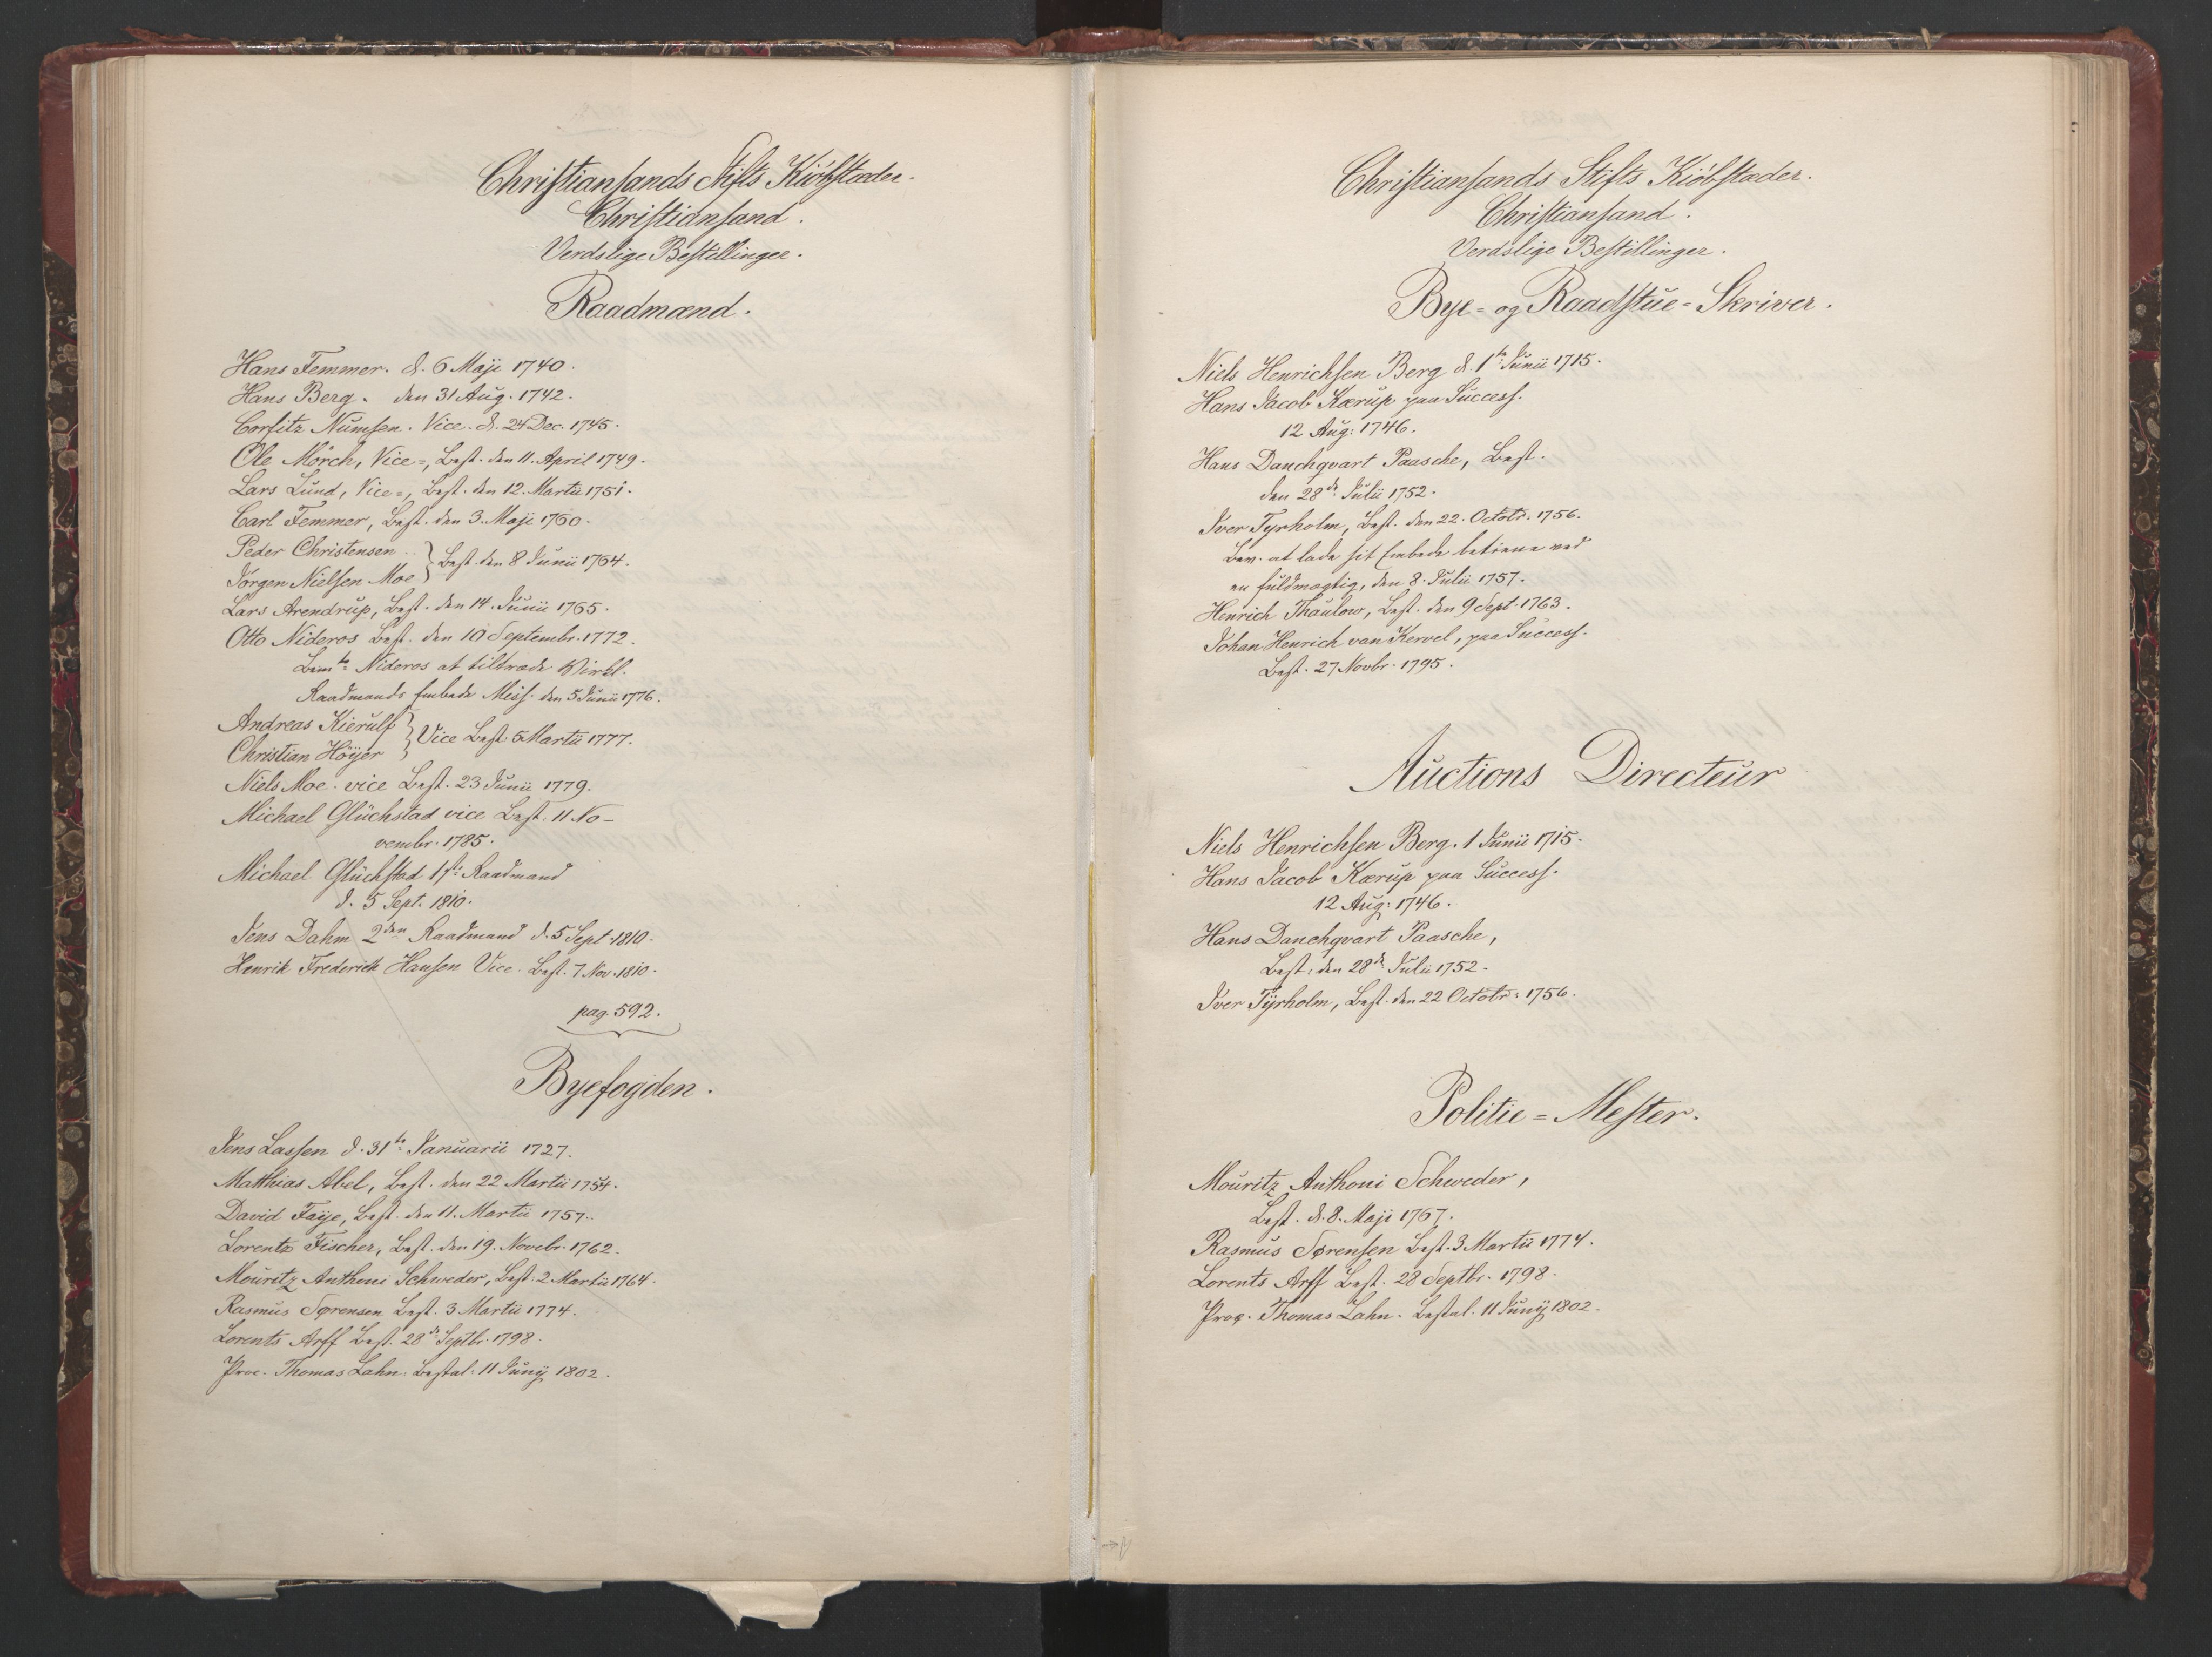 Christiansands Stifts Kiöbstæder.
Christiansand.
Verdslige Bestillinger.
Raadmænd.
Hans Femmer. d. 6 Maji 1740.
Hans Berg. den 31 Aug. 1742.
Corfitz Numsen. Vice. d. 24 Dec. 1745.
Ole Mörch, Vice=, Best. den 11. April 1749.
Lars Lund, Vice=, Best. den 12. Martii 1751.
Carl Femmer, Best. den 3. Maji 1760.
Peder Christensen
Jörgen Nielsen Moe } Best. den 8 Junii 1764.
Lars Arendrup, Best. den 14. Junii 1765.
Otto Nideros Best. den 10 Septembr. 1772.
Bemte Nideros at tiltræde Wirkl.
Raadmands Embede Miss. den 5 Junii 1776.
Andreas Kierulf
Christian Höyer } Vice Best. 5 Martii 1777.
Niels Moe. vice Best. 23 Junii 1779.
Michael Glückstad vice Best. 11 No-
vembr. 1785.
Michael Glückstad 1ste Raadmand
d. 5 Sept. 1810.
Jens Dahm 2den Raadmand d. 5 Sept 1810.
Henrik Frederich Hansen Vice. Best. 7 Nov. 1810.
pag. 592.
Byefogden.
Jens Lassen d. 31te Januarii 1727.
Matthias Abel, Best. den 22 Martii 1754.
David Faye, Best. den 11. Martii 1757.
Lorentz Fischer, Best. den 19. Novebr. 1762.
Mouritz Anthoni Schweder, Best. 2 Martii 1764.
Rasmus Sørensen Best. 3 Martii 1774.
Lorents Arff Best. 28de Septbr. 1798.
Proc. Thomas Lahn. Bestal. 11 Junij 1802.
Christiansands Stifts Kiöbstæder.
Christiansand.
Verdslige Bestillinger.
Bye- og Raadstue-Skriver.
Niels Henrichsen Berg d. 1te Junii 1715.
Hans Jacob Kærup paa Success.
12 Aug: 1746.
Hans Danchqvart Paasche, Best.
den 28de Julii 1752.
Iver Tyrholm, Best. den 22. Octobr. 1756.
Bev. at lade sit Embede betiene ved
en fuldmægtig, den 8. Julii 1757.
Henrich Thaulow, Best. den 9 Sept. 1763.
Johan Henrich van Kervel, paa Success.
Best. 27 Novbr. 1795.
Auctions Directeur
Niels Henrichsen Berg. 1 Junii 1715.
Hans Jacob Kærup paa Success.
12 Aug: 1746.
Hans Danchqvart Paasche,
Best: den 28de Julii 1752.
Iver Tyrholm, Best. den 22 Octobr: 1756.
Politie=Mester.
Mouritz Anthoni Schweder,
Best. d. 8. Maji 1767.
Rasmus Sørensen Best. 3 Martii 1774.
Lorents Arff Best. 28 Septbr. 1798.
Proc. Thomas Lahn. Bestal. 11 Junij 1802.